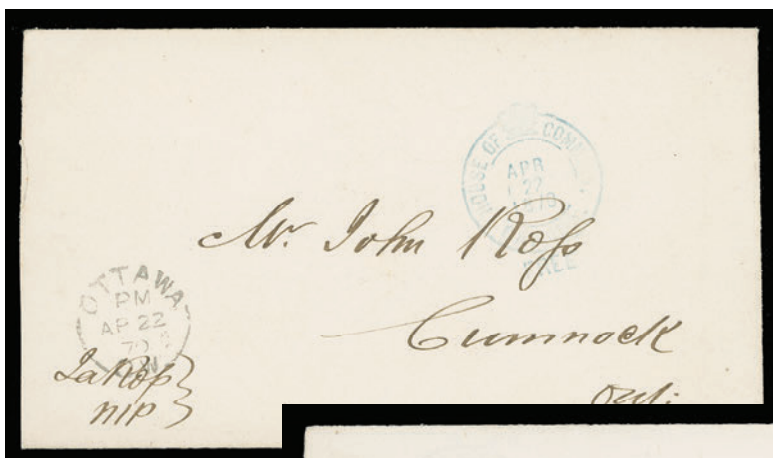 HOUSE OF COMM
APR
22
FREE
Mr. John Ross
Cumnock
Ont:
OTTAWA
PM
AP 22
ON
Ross
MP